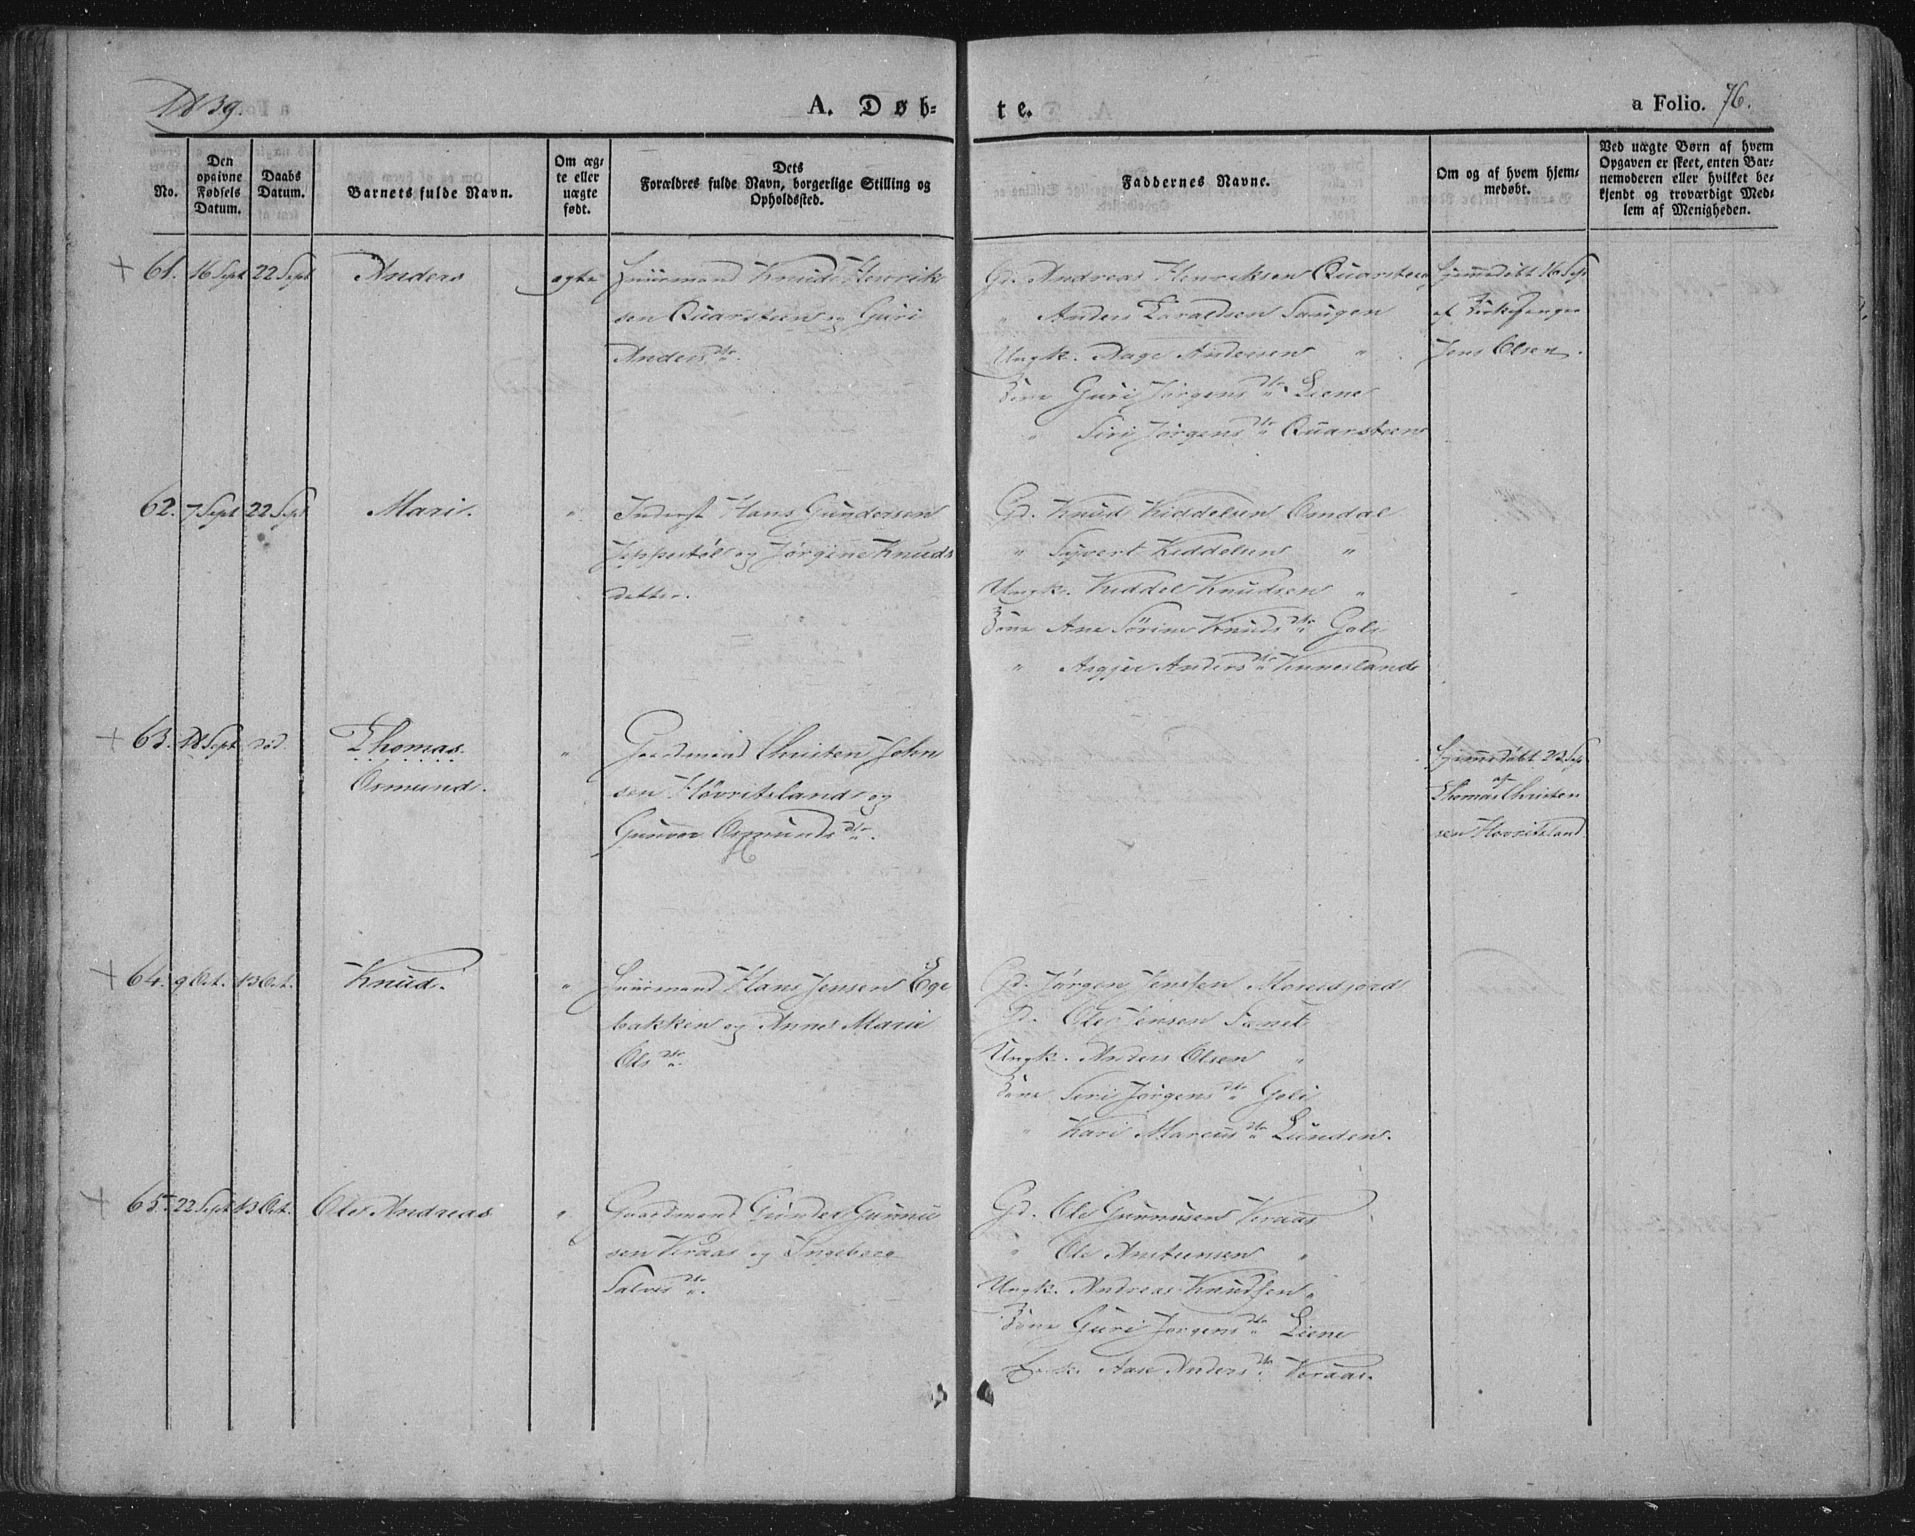 1839.
A. Døb-
te.
a Folio. 76.
No.
Den opgivne Fødsels Datum.
Daabs Datum.
Barnets fulde Navn.
Om ægte eller uægte født.
Dets
Forældres fulde Navn, borgerlige Stilling og
Opholdssted.
Faddernes Navne.
Om og af hvem hjemmedøbt.
Ved uægte Børn af hvem
Opgaven er skeet, enten Bar-
nemoderen eller hvilket be-
kjendt og troværdigt Med-
lem af Menigheden.
+ 61. 16 Sept 22 Sept Anders ægte Huusmand Knud Henrik
sen Quarsteen og Guri
Anders dtr.
Gd. Andreas Henriksen Quarsteen
" Anders Taraldsen Saugen
Ungk. Aage Andersen "
Kone Guri Jørgens dtr Liene
" Siri Jørgens dtr Quarsteen
Hjemmedøbt 16 Sept
af
Jens Olsen.
62. 7 Sept 22 Sept Mari. " Inderst Hans Gundersen
Jeppestøl og Jørgine Knuds
datter.
Gd. Knud Kiddelsen Omdal
" Syvert Kiddelsen "
Ungk. Kiddel Knudsen "
Kone Ane Sørine Knuds dtr Goli
" Anders dtr Kennesland
+ 63. 18 Sept død. Thomas
Osmund. " Gaardmand Christen John
sen Høvritsland og
Gunvor Osmunds dtr.
Hjemmedøbt 23 Sept
af
Thomas Christen
sen Hovritsland
+ 64. 9 Oct. 13 Oct. Knud. " Huusmand Hans Jensen Ege
bakken og Anne Marie
Ols dtr.
Gd. Jørgen Jenssen Moseidjord
Gd. Ole Jensen
Ungk. Anders Olsen "
Kone Siri Jørgens dtr Goli
" Kari Marcus dtr Lunden.
+ 65. 22 Sept 13 Oct. Ole Andreas " Gaardmand Gunder Gunnu
sen Veraas og Ingeborg
Salves dtr.
Gd. Ole Gunnusen Veraas
" Ole Anstensen "
Ungk. Andreas Knudsen "
Kone Guri Jørgens dtr Liene
Aase Anders dtr Veraas.